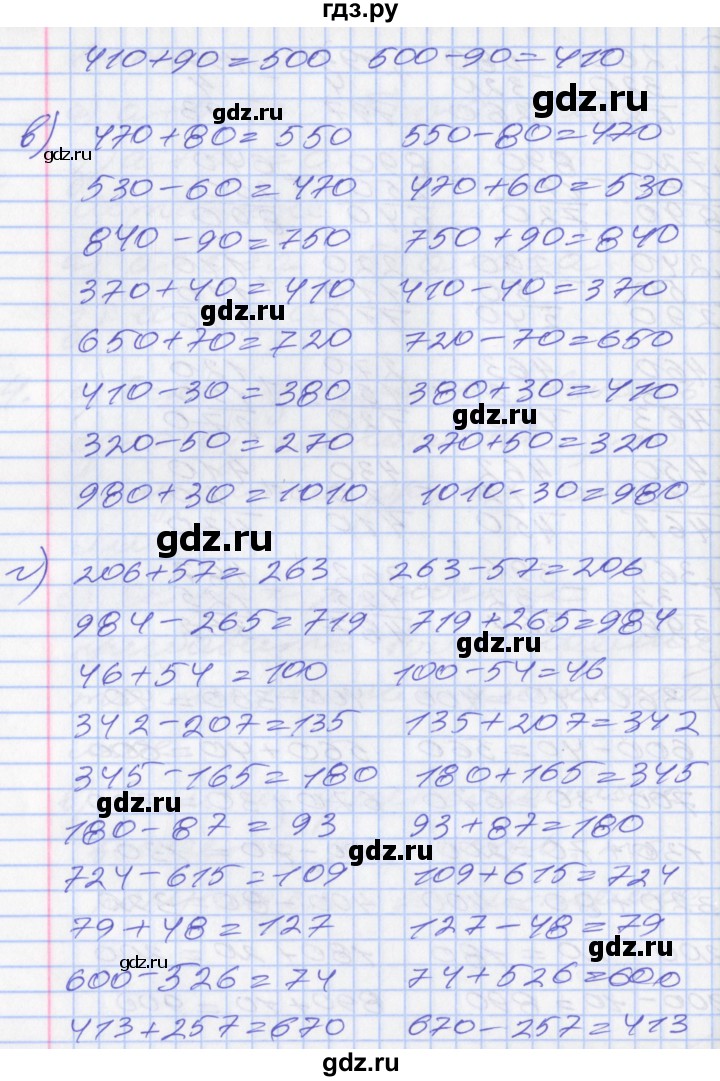 гдз.ру
410+90=500 500-90=410
gdz.ru
в) 470+80=550 550-80=470
gdz.ru
530-60=470 470+60=530
840-90=750 750+90=840
370+40=410 410-40=370
gdz.ru
650+70=720 720-70=650
410-30=380 380+30=410
gdz.ru
320-50=270 270+50=320
980+30=1010 1010-30=980
gdz.ru
г) 206+57=263 263-57=206
984-265=719 719+265=984
gdz.ru
46+54=100 100-54=46
342-207=135 135+207=342
345-165=180 180+165=345
gdz.ru
180-87=93 93+87=180
gdz.ru
724-615=109 109+615=724
79+48=127 127-48=79
gdz.ru
gdz.ru
600-526=74 74+526=600
413+257=670 670-257=413
gdz.ru